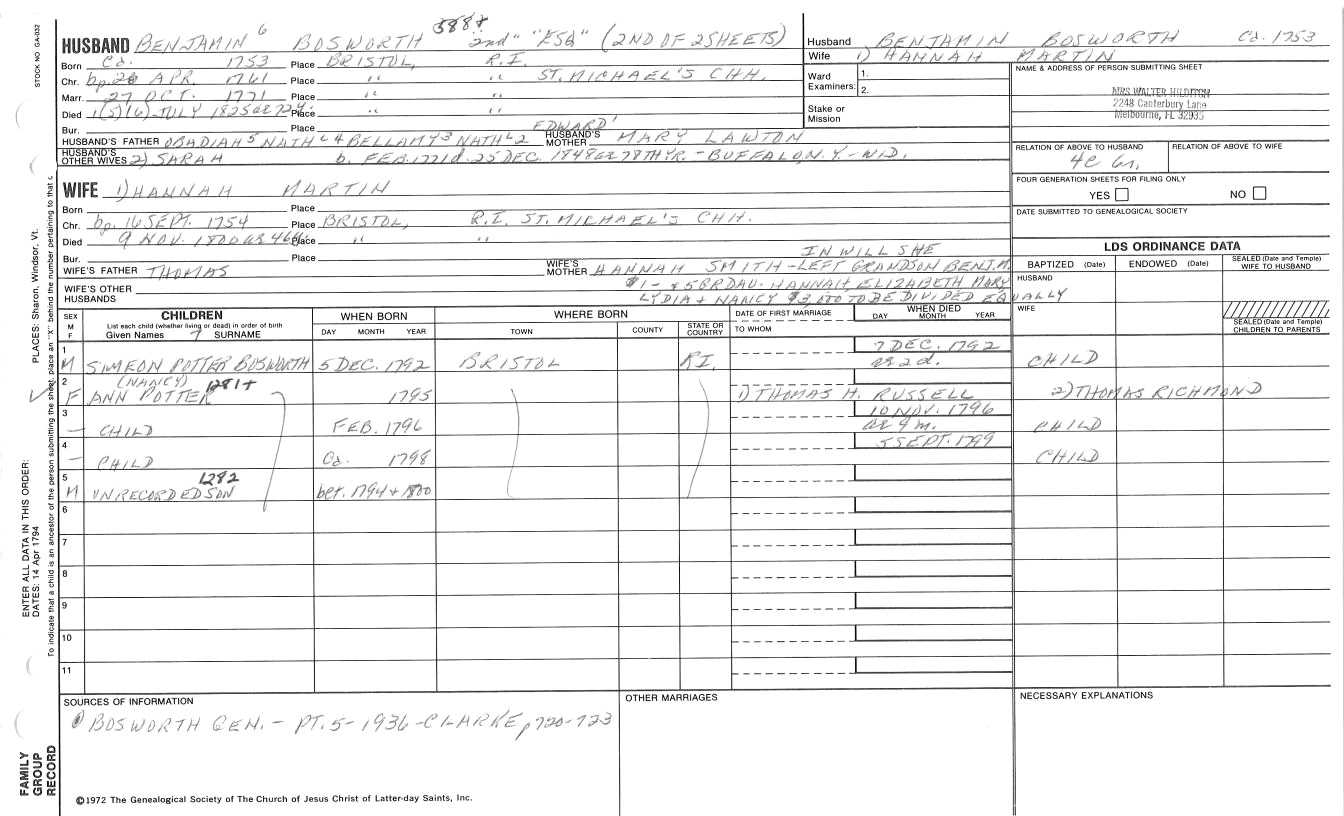 STOCK NO. GA-032
HUSBAND BENJAMIN 6 BOSWORTH 588+ "2nd" "ESQ" (2ND OF 2 SHEETS)
Born Ca. 1753 Place BRISTOL, R.I.
Chr. bp. 26 APR. 1761 Place " " ST. MICHAEL'S CHH.
Marr. 27 OCT. 1771 Place " "
Died 1(5)(6) JULY 1825 Place " "
Bur. Place EDWARD'
HUSBAND'S FATHER OBADIAH 5 NATH L 4 BELLAMY 3 NATH L 2 HUSBAND'S MOTHER MARY LAWTON
HUSBAND'S OTHER WIVES 2) SARAH b. FEB. 1771 d. 25 DEC. 1848 78TH YR. - BUFFALO, N.Y. - WID.
Husband BENJAMIN BOSWORTH Ca. 1753
Wife 1) HANNAH MARTIN
Ward Examiners: 1.
2.
Stake or Mission
NAME & ADDRESS OF PERSON SUBMITTING SHEET
MRS WALTER HILDITCH
2248 Canterbury Lane
Melbourne, FL 32935
RELATION OF ABOVE TO HUSBAND RELATION OF ABOVE TO WIFE
FOUR GENERATION SHEETS FOR FILING ONLY
YES NO
DATE SUBMITTED TO GENEALOGICAL SOCIETY
WIFE 1) HANNAH MARTIN
Born Place
Chr. bp. 16 SEPT. 1754 Place BRISTOL, R.I. ST. MICHAEL'S CHH.
Died 9 NOV. 1800 Place " "
Bur. Place
WIFE'S FATHER THOMAS WIFE'S MOTHER HANNAH SMITH - IN WILL SHE LEFT GRANDSON BENJ. M.
WIFE'S OTHER HUSBANDS $1 - & 5 GRDAU. HANNAH, ELIZABETH MARY
LYDIA & NANCY $3,000 TO BE DIVIDED EQUALLY
LDS ORDINANCE DATA
BAPTIZED (Date) ENDOWED (Date) SEALED (Date and Temple) WIFE TO HUSBAND
HUSBAND
WIFE
SEALED (Date and Temple) CHILDREN TO PARENTS
SEX M F
CHILDREN
List each child (whether living or dead) in order of birth
Given Names SURNAME
WHEN BORN
DAY MONTH YEAR
WHERE BORN
TOWN COUNTY STATE OR COUNTRY
DATE OF FIRST MARRIAGE
TO WHOM
WHEN DIED
DAY MONTH YEAR
1 M SIMEON POTTER BOSWORTH 5 DEC. 1792 BRISTOL R.I. 7 DEC. 1792 2d. CHILD
2 F (NANCY) ANN POTTER 1281+ 1795 1) THOMAS H. RUSSELL 2) THOMAS RICHMOND
3 - CHILD FEB. 1796 10 NOV. 1796 9 m. CHILD
4 - CHILD Ca. 1798 5 SEPT. 1799 CHILD
5 M UNRECORDED SON 1282 bet. 1794 + 1800
6
7
8
9
10
11
SOURCES OF INFORMATION
BOSWORTH GEN. - PT. 5 - 1936 - CLARKE, p 720-723
OTHER MARRIAGES
NECESSARY EXPLANATIONS
©1972 The Genealogical Society of The Church of Jesus Christ of Latter-day Saints, Inc.
FAMILY GROUP RECORD
ENTER ALL DATA IN THIS ORDER:
DATES: 14 Apr 1794
PLACES: Sharon, Windsor, Vt.
To indicate that a child is an ancestor of the person submitting the sheet, place an "X" behind the number pertaining to that c